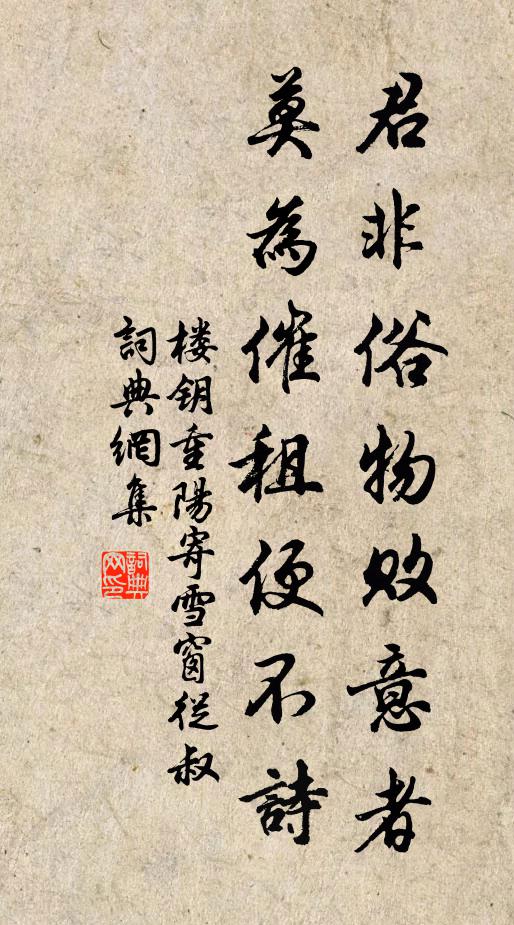 君非俗物败意者
莫為催租便不詩
楼钥重陽寄雪窗從叔
詞典網集
詞典網印